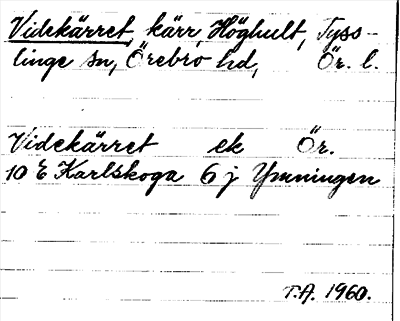 Videkärret, kärr, Höghult, Tyss-
linge sn, Örebro hd, Ör. l.
Videkärret ek Ör.
10 E Karlskoga 6 j Ymningen
T.A. 1960.